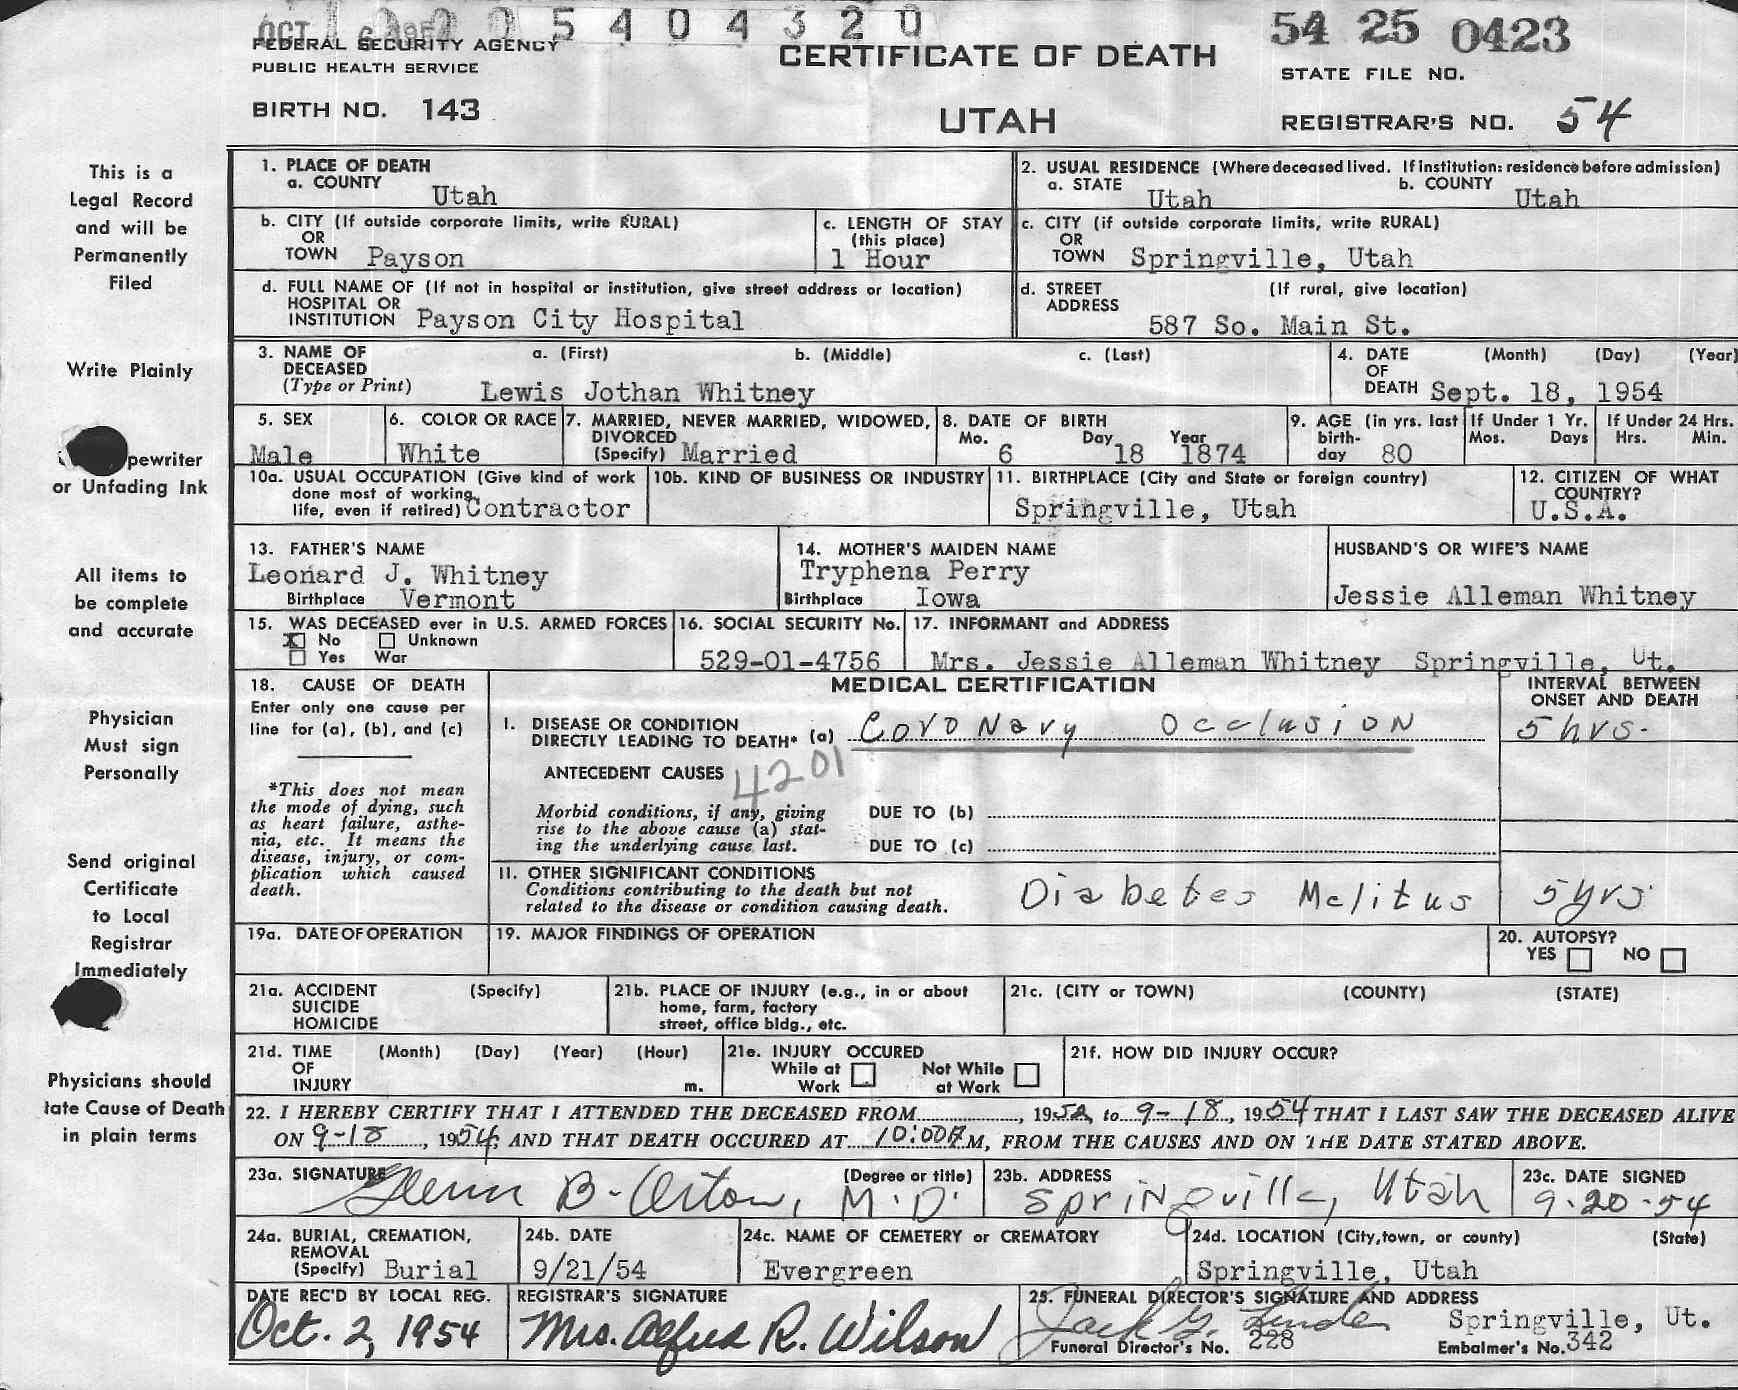 OCT 6 1954 2005404320
54 25 0423
FEDERAL SECURITY AGENCY
PUBLIC HEALTH SERVICE
CERTIFICATE OF DEATH
STATE FILE NO.
BIRTH NO. 143
UTAH
REGISTRAR'S NO. 54
This is a
Legal Record
and will be
Permanently
Filed
Write Plainly
pewriter
or Unfading Ink
All items to
be complete
and accurate
Physician
Must sign
Personally
Send original
Certificate
to Local
Registrar
Immediately
Physicians should
tate Cause of Death
in plain terms
1. PLACE OF DEATH
a. COUNTY Utah
2. USUAL RESIDENCE (Where deceased lived. If institution: residence before admission)
a. STATE Utah b. COUNTY Utah
b. CITY (If outside corporate limits, write RURAL)
OR
TOWN Payson
c. LENGTH OF STAY
(this place)
1 Hour
c. CITY (if outside corporate limits, write RURAL)
OR
TOWN Springville, Utah
d. FULL NAME OF (If not in hospital or institution, give street address or location)
HOSPITAL OR
INSTITUTION Payson City Hospital
d. STREET (If rural, give location)
ADDRESS
587 So. Main St.
3. NAME OF a. (First) b. (Middle) c. (Last)
DECEASED
(Type or Print) Lewis Jothan Whitney
4. DATE (Month) (Day) (Year)
OF
DEATH Sept. 18, 1954
5. SEX
Male
6. COLOR OR RACE
White
7. MARRIED, NEVER MARRIED, WIDOWED,
DIVORCED
(Specify) Married
8. DATE OF BIRTH
Mo. Day Year
6 18 1874
9. AGE (in yrs. last
birth-
day 80
If Under 1 Yr.
Mos. Days
If Under 24 Hrs.
Hrs. Min.
10a. USUAL OCCUPATION (Give kind of work
done most of working
life, even if retired) Contractor
10b. KIND OF BUSINESS OR INDUSTRY
11. BIRTHPLACE (City and State or foreign country)
Springville, Utah
12. CITIZEN OF WHAT
COUNTRY?
U.S.A.
13. FATHER'S NAME
Leonard J. Whitney
Birthplace Vermont
14. MOTHER'S MAIDEN NAME
Tryphena Perry
Birthplace Iowa
HUSBAND'S OR WIFE'S NAME
Jessie Alleman Whitney
15. WAS DECEASED ever in U.S. ARMED FORCES
X No Unknown
Yes War
16. SOCIAL SECURITY No.
529-01-4756
17. INFORMANT and ADDRESS
Mrs. Jessie Alleman Whitney Springville, Ut.
18. CAUSE OF DEATH
Enter only one cause per
line for (a), (b), and (c)
*This does not mean
the mode of dying, such
as heart failure, asthe-
nia, etc. It means the
disease, injury, or com-
plication which caused
death.
MEDICAL CERTIFICATION
INTERVAL BETWEEN
ONSET AND DEATH
I. DISEASE OR CONDITION
DIRECTLY LEADING TO DEATH* (a) Coronary Occlusion 5 hrs.
ANTECEDENT CAUSES 4201
Morbid conditions, if any, giving
rise to the above cause (a) stat-
ing the underlying cause last.
DUE TO (b)
DUE TO (c)
11. OTHER SIGNIFICANT CONDITIONS
Conditions contributing to the death but not
related to the disease or condition causing death.
Diabetes Melitus 5 yrs
19a. DATE OF OPERATION
19. MAJOR FINDINGS OF OPERATION
20. AUTOPSY?
YES NO
21a. ACCIDENT (Specify)
SUICIDE
HOMICIDE
21b. PLACE OF INJURY (e.g., in or about
home, farm, factory
street, office bldg., etc.
21c. (CITY or TOWN) (COUNTY) (STATE)
21d. TIME (Month) (Day) (Year) (Hour)
OF
INJURY m.
21e. INJURY OCCURED
While at Work Not While at Work
21f. HOW DID INJURY OCCUR?
22. I HEREBY CERTIFY THAT I ATTENDED THE DECEASED FROM , 1952 to 9-18, 1954 THAT I LAST SAW THE DECEASED ALIVE
ON 9-18, 1954, AND THAT DEATH OCCURED AT 10:00AM, FROM THE CAUSES AND ON THE DATE STATED ABOVE.
23a. SIGNATURE (Degree or title)
Glenn B. Orton, M.D.
23b. ADDRESS
Springville, Utah
23c. DATE SIGNED
9-20-54
24a. BURIAL, CREMATION,
REMOVAL
(Specify) Burial
24b. DATE
9/21/54
24c. NAME OF CEMETERY or CREMATORY
Evergreen
24d. LOCATION (City, town, or county) (State)
Springville, Utah
DATE REC'D BY LOCAL REG.
Oct. 2, 1954
REGISTRAR'S SIGNATURE
Mrs. Alfred R. Wilson
25. FUNERAL DIRECTOR'S SIGNATURE AND ADDRESS
Jack G. Springville, Ut.
Funeral Director's No. 228 Embalmer's No. 342